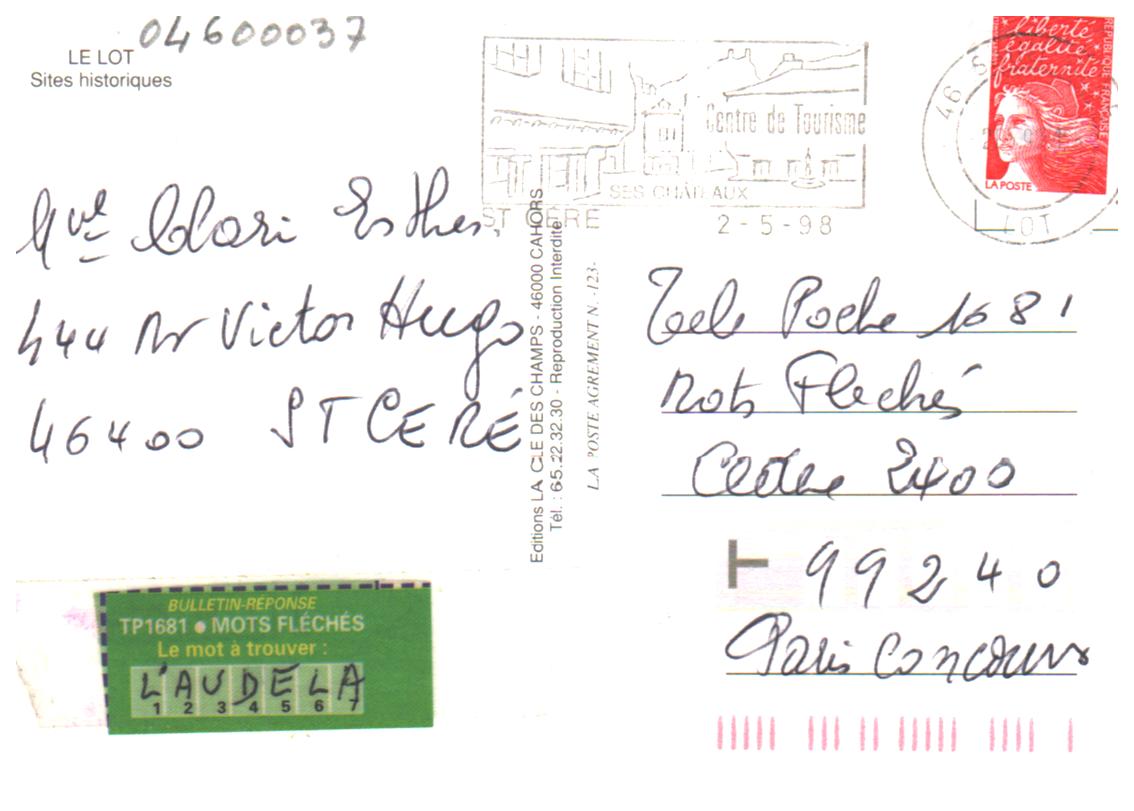 04600037
LE LOT
Sites historiques
Centre de Tourisme
SES CHÂTEAUX
ST CERE
2-5-98
46 S
LOT
liberté
égalité
fraternité
RÉPUBLIQUE FRANÇAISE
LA POSTE
Mvl Clari Esther.
444 Av Victor Hugo
46400 ST CERÉ
Editions LA CLE DES CHAMPS - 46000 CAHORS
Tél. : 65.22.32.30 - Reproduction Interdite
LA POSTE AGREMENT N. -123-
Tele Poche 1681
Mots Flechés
Cedex 2400
99240
Paris Concours
BULLETIN-RÉPONSE
TP1681 ● MOTS FLÉCHÉS
Le mot à trouver :
L'AUDELA
1 2 3 4 5 6 7